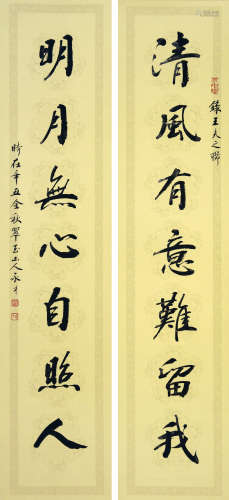 清風有意難留我
錄王夫之聯
明月無心自照人
時在辛丑金秋